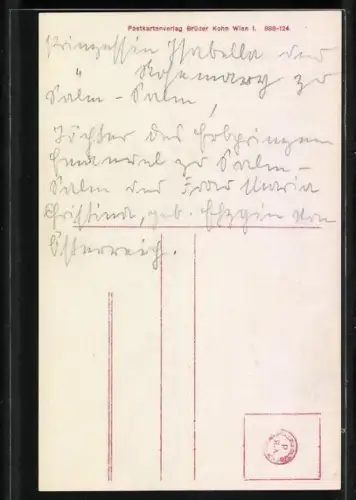 Postkartenverlag Brüder Kohn Wien I. 888-124
Prinzessin Isabella und
" Rosemary zu
Salm-Salm,
Töchter des Erbprinzen
Emanuel zu Salm-
Salm und Frau Maria
Christina, geb. Erzgin von
Österreich.